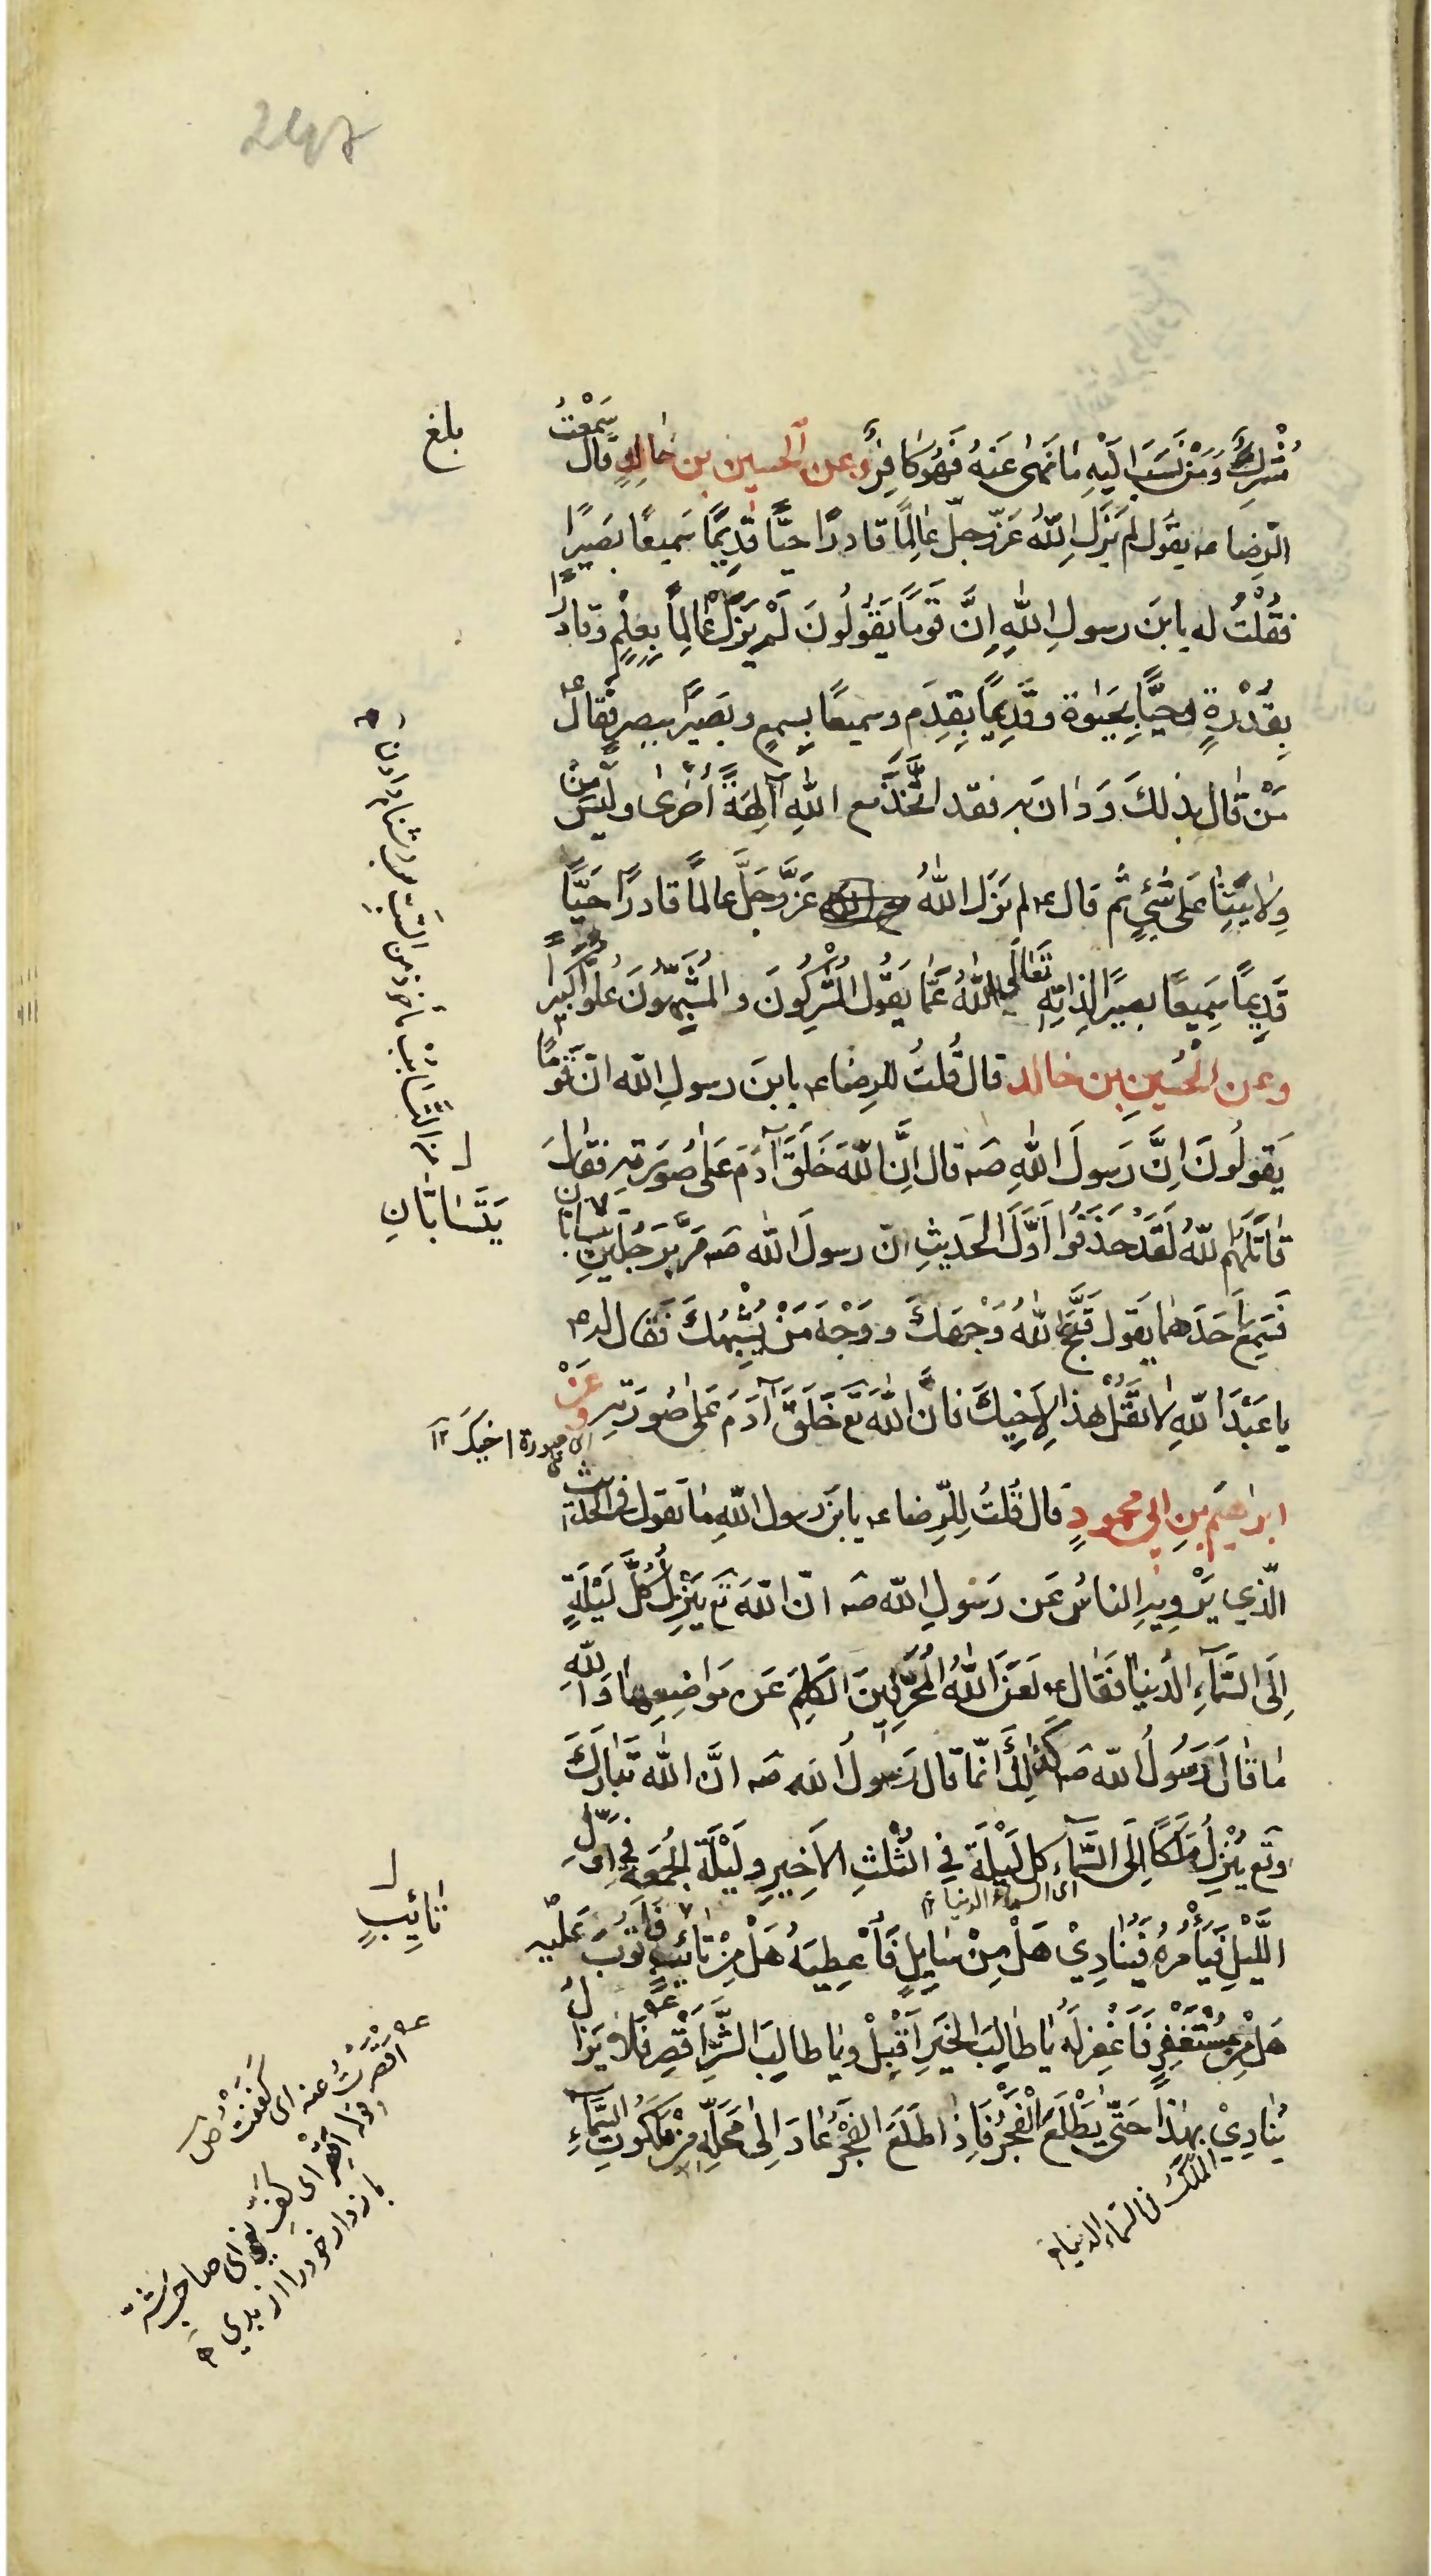 بلغ
مُشْرِكٌ وَمَنْ نَسَبَ اِلَيْهِ مَا نَهٰى عَنْهُ فَهُوَ كَافِرٌ وعن الحسين بن خالدٍ قال سَمِعْتُ
الرضا ع يقول لم يَزَلِ اللّٰهُ عَزّ وجلّ عَالِمًا قادرًا حيًّا قَدِيمًا سَميعًا بصيرًا
فَقُلْتُ له يا بنَ رسولِ اللّٰهِ اِنَّ قَومًا يَقُولُونَ لَمْ يَزَلْ عَالِمًا بِعِلْمٍ وقادرًا
بِقُدْرَةٍ وحيًّا بِحَيٰوة وقَدِيمًا بِقِدَم وسميعًا بِسمعٍ وبَصيرًا ببصرٍ فقال ع
مَنْ قال بذلكَ وَدَانَ به فقد اتَّخَذَ مع اللّٰهِ آلِهَةً اُخْرٰى ولَيْسَ مِنْ
وِلَايَتِنَا عَلى شَيْءٍ ثم قال ع لم يَزَل اللّٰهُ عَزَّ وَجَلَّ عالمًا قادرًا حَيًّا
قَدِيمًا سَمِيعًا بصيرًا لِذاتِهِ تَعَالَى اللّٰهُ عَمَّا يَقُولُ الْمُشْرِكُونَ والمُشَبِّهُونَ عُلُوًّا كَبِيرًا
وعن الْحُسَينِ بن خالد قال قُلتُ للرِضاء ع يا بنَ رسولِ اللّٰه انّ قَومًا
يَقولُونَ اِنَّ رَسولَ اللّٰهِ صه قال اِنَّ اللّٰهَ خَلَقَ آدَمَ عَلىٰ صُورَتِهِ فقالَ
قاتَلَهُمُ اللّٰهُ لَقَدْ حَذَفُوا اَوَّلَ الحَدِيثِ انّ رسولَ اللّٰه صه مَرَّ بِرَجُلَينِ يتسابان
يَتَسَابَّانِ
فَسَمِعَ اَحَدَهما يَقول قَبَّحَ اللّٰهُ وَجْهَكَ وَوَجْهَ مَنْ يُشْبِهُكَ فَقال له ص
يا عَبْدَ اللّٰهِ لا تَقُلْ هذا لِاَخِيكَ فانّ اللّٰهَ تع خَلَقَ آدَمَ عَلىٰ صُورَتِهِ وعَنْ
اى على صورة اخيك ١٢
ابراهيمَ بنِ ابى محمودٍ قال قُلتُ لِلرِّضاء ع يا بنَ رسول اللّٰهِ ما تقول فى الحديث
الّذي يَرْوِيهِ الناسُ عَن رَسولِ اللّٰه صه انّ اللّٰهَ تع يَنْزِلُ كُلَّ لَيْلَةٍ
اِلَى السَّمَآءِ الدُّنيا فَقال ع لَعَنَ اللّٰهُ الْمُحَرِّفِينَ الكَلِمَ عَن مَواضِعِهَا وَاللّٰهِ
مَا قَالَ رَسُولُ اللّٰه صه كَذٰلِكَ اِنّمَا قال رَسُولُ اللّٰه صه اِنَّ اللّٰه تَبَارَكَ
وتع يُنْزِلُ مَلَكًا اِلَى السَّمآءِ كل لَيْلَةٍ فِي الثُّلثِ الاَخِيرِ ولَيْلَةَ الجُمْعَةِ فِي اوّلِ
اى السماء الدنيا ١٢
اللَّيْلِ فَيَأْمُرُهُ فَيُنَادِيْ هَلْ مِنْ سَايِلٍ فَاُعْطِيَهُ هَلْ مِنْ تائبٍ فَاَتُوبَ عَلَيْهِ
تائِبٍ
هَل مِن مُسْتَغْفِرٍ فَاَغْفِرَ لَهُ يَا طَالِبَ الخَيرِ اَقْبِلْ ويا طالِبَ الشَّرِّ اَقْصِر فَلَا يَزَالُ
يُنَادِيْ بِهٰذَا حَتّى يَطْلُعَ الْفَجْرُ فَاِذَا طَلَعَ الفَجْرُ عَادَ اِلى مَحَلِّهِ مِنْ مَلَكُوتِ السَّمآءِ
الملَك فى السماء الدنيا
اقصرت عنه اى كففت ص
قوله اقصر اى كفّ يعنى اى صاحب شرّ
باز دار خود را از بدي